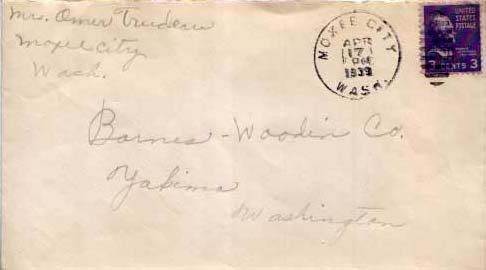 Mrs. Omer Trudeau
Moxee City
Wash.
MOXEE CITY
APR
17
PM
1939
WASH.
UNITED
STATES
POSTAGE
3 CENTS 3
Barnes-Woodin Co.
Yakima
Washington